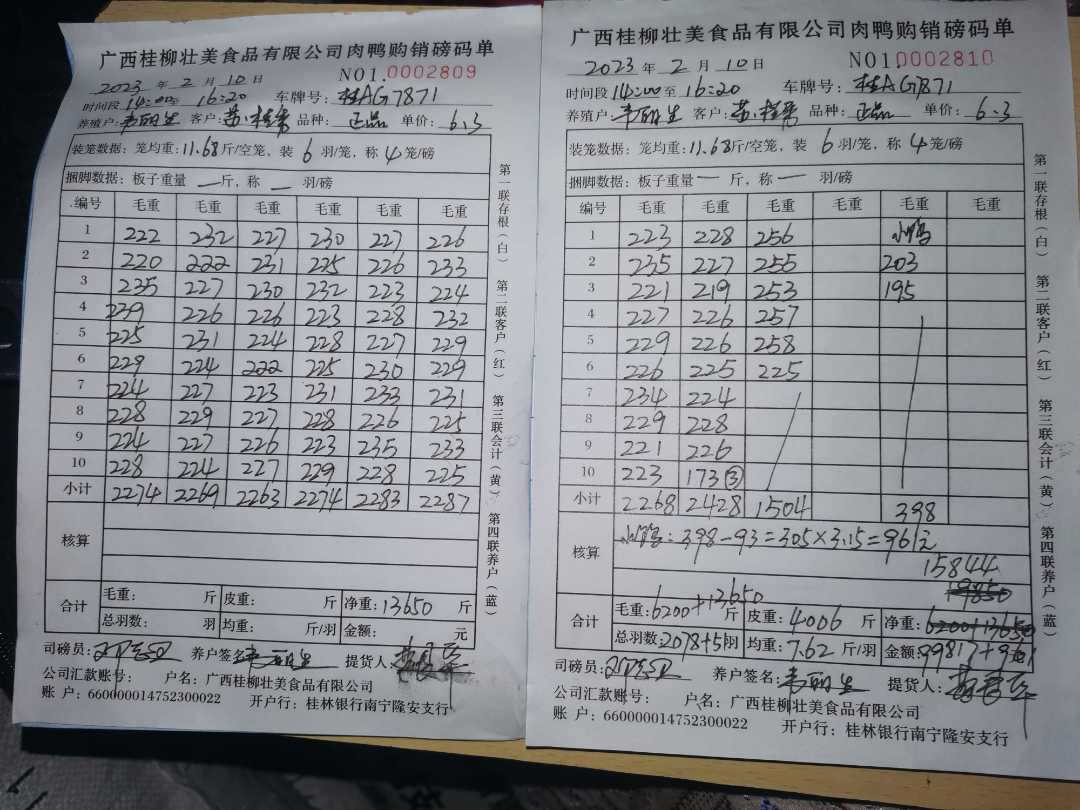 广西桂柳壮美食品有限公司肉鸭购销磅码单
2023 年 2 月 10 日 NO1.0002809
时间段 14:00 16:20 车牌号: 桂AG7871
养殖户: 韦丽生 客户: 品种: 正品 单价: 6.3
装笼数据: 笼均重: 11.68斤/空笼, 装 6 羽/笼, 称 4 笼/磅
捆脚数据: 板子重量 — 斤, 称 — 羽/磅
编号 毛重 毛重 毛重 毛重 毛重 毛重
1 222 232 227 230 227 226
2 220 222 231 225 226 233
3 235 227 230 232 223 224
4 239 226 226 223 228 232
5 225 231 224 228 227 229
6 229 224 222 225 230 229
7 224 227 223 231 233 231
8 228 229 227 228 226 225
9 224 227 226 223 235 233
10 228 224 227 229 228 225
小计 2274 2269 2263 2274 2283 2287
核算
合计 毛重: 斤 皮重: 斤 净重: 13650 斤
总羽数: 羽 均重: 斤/羽 金额: 元
司磅员: 养户签名: 韦丽生 提货人:
公司汇款账号: 户名: 广西桂柳壮美食品有限公司
账 户: 660000014752300022 开户行: 桂林银行南宁隆安支行
第一联存根(白) 第二联客户(红) 第三联会计(黄) 第四联养户(蓝)
广西桂柳壮美食品有限公司肉鸭购销磅码单
2023 年 2 月 10 日 NO1.0002810
时间段 14:00 至 16:20 车牌号: 桂AG7871
养殖户: 韦丽生 客户: 品种: 正品 单价: 6.3
装笼数据: 笼均重: 11.68斤/空笼, 装 6 羽/笼, 称 4 笼/磅
捆脚数据: 板子重量 — 斤, 称 — 羽/磅
编号 毛重 毛重 毛重 毛重 毛重 毛重
1 223 228 256 小鸭
2 235 227 255 203
3 221 219 253 195
4 227 226 257
5 229 226 258
6 226 225 225
7 234 224
8 229 228
9 221 226
10 223 173③
小计 2268 2428 1504 398
核算 小鸭: 398-93=305×3.15=961元
15844
19850
合计 毛重: 6200+13650 斤 皮重: 4006 斤 净重: 6200+13650
总羽数 2078+5羽 均重: 7.62 斤/羽 金额: 99817+961
司磅员: 养户签名: 韦丽生 提货人:
公司汇款账号: 户名: 广西桂柳壮美食品有限公司
账 户: 660000014752300022 开户行: 桂林银行南宁隆安支行
第一联存根(白) 第二联客户(红) 第三联会计(黄) 第四联养户(蓝)